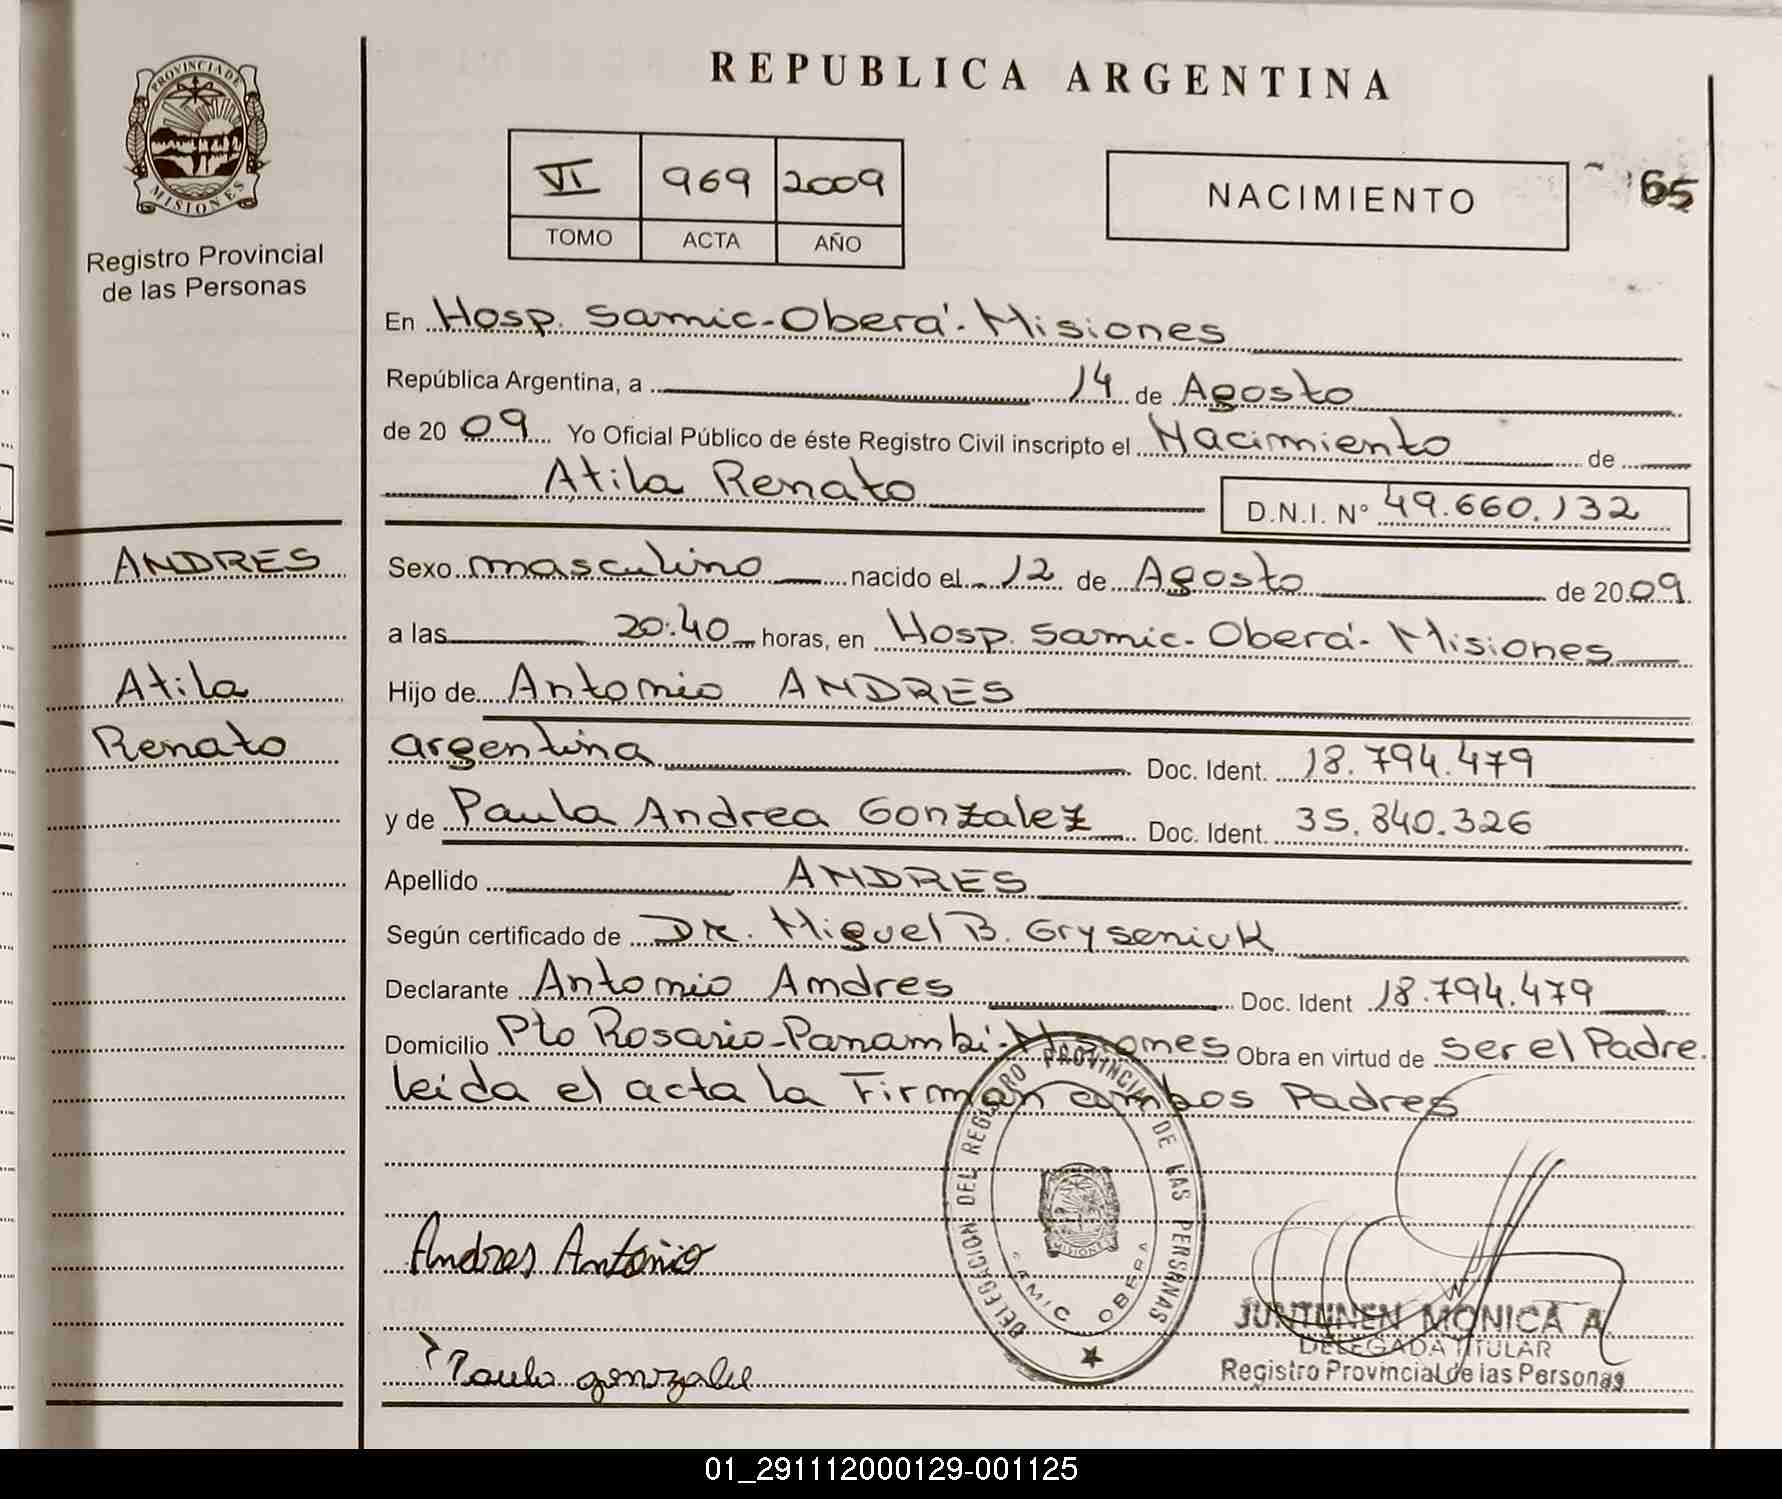 PROVINCIA DE
MISIONES
Registro Provincial
de las Personas
REPUBLICA ARGENTINA
VI 969 2009
TOMO ACTA AÑO
NACIMIENTO
65
En Hosp. Samic-Oberá-Misiones
República Argentina, a 14 de Agosto
de 2009 Yo Oficial Público de éste Registro Civil inscripto el Nacimiento de
Atila Renato
D.N.I. Nº 49.660.132
ANDRES
Atila
Renato
Sexo masculino nacido el 12 de Agosto de 2009
a las 20:40 horas, en Hosp. Samic-Oberá-Misiones
Hijo de Antonio ANDRES
argentina Doc. Ident. 18.794.479
y de Paula Andrea Gonzalez Doc. Ident. 35.840.326
Apellido ANDRES
Según certificado de Dr. Miguel B. Gryseniuk
Declarante Antonio Andres Doc. Ident 18.794.479
Domicilio Pto Rosario-Panambi-Misiones Obra en virtud de ser el Padre.
leida el acta la Firman ambos Padres
DELEGACION DEL REGISTRO PROVINCIAL DE LAS PERSONAS
MISIONES
SAMIC OBERA
Andres Antonio
Paula gonzalez
JUNTUNEN MONICA A.
DELEGADA TITULAR
Registro Provincial de las Personas
01_291112000129-001125